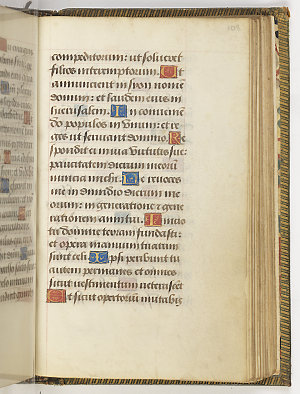 compeditorum: ut solveret
filios interemptorum. Ut
annuncient in syon nomē
domini: et laudem eius in
hierusalem. In convenien
do populos in unum: et re
ges ut serviant domino. Re
spondit ei in via virtutis sue:
paucitatem dierum meorū
nuncia michi. Ne revoces
me in dimidio dierum me
orum: in generatione et gene
rationem anni tui. Initio
tu domine terram fundasti:
et opera manuum tuarum
sunt celi. Ipsi peribunt tu
autem permanes et omnes
sicut vestimentum veterascēt
Et sicut opertorium mutabis